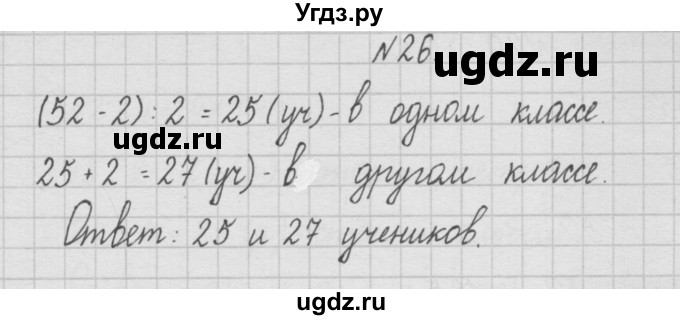 Угдз.ру
№26
ugdz.ru
(52 - 2) : 2 = 25 (уч) - в одном классе.
ugdz.ru
25 + 2 = 27 (уч) - в другом классе.
ugdz.ru
Ответ: 25 и 27 учеников.
ugdz.ru